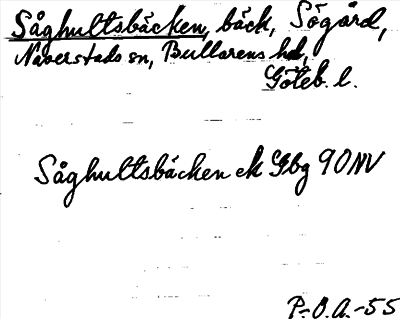 Såghultsbäcken, bäck, Sögård,
Naverstads sn, Bullarens hd,
Göteb. l.
Såghultsbäcken ek Gbg 90NV
P.O.A.-55